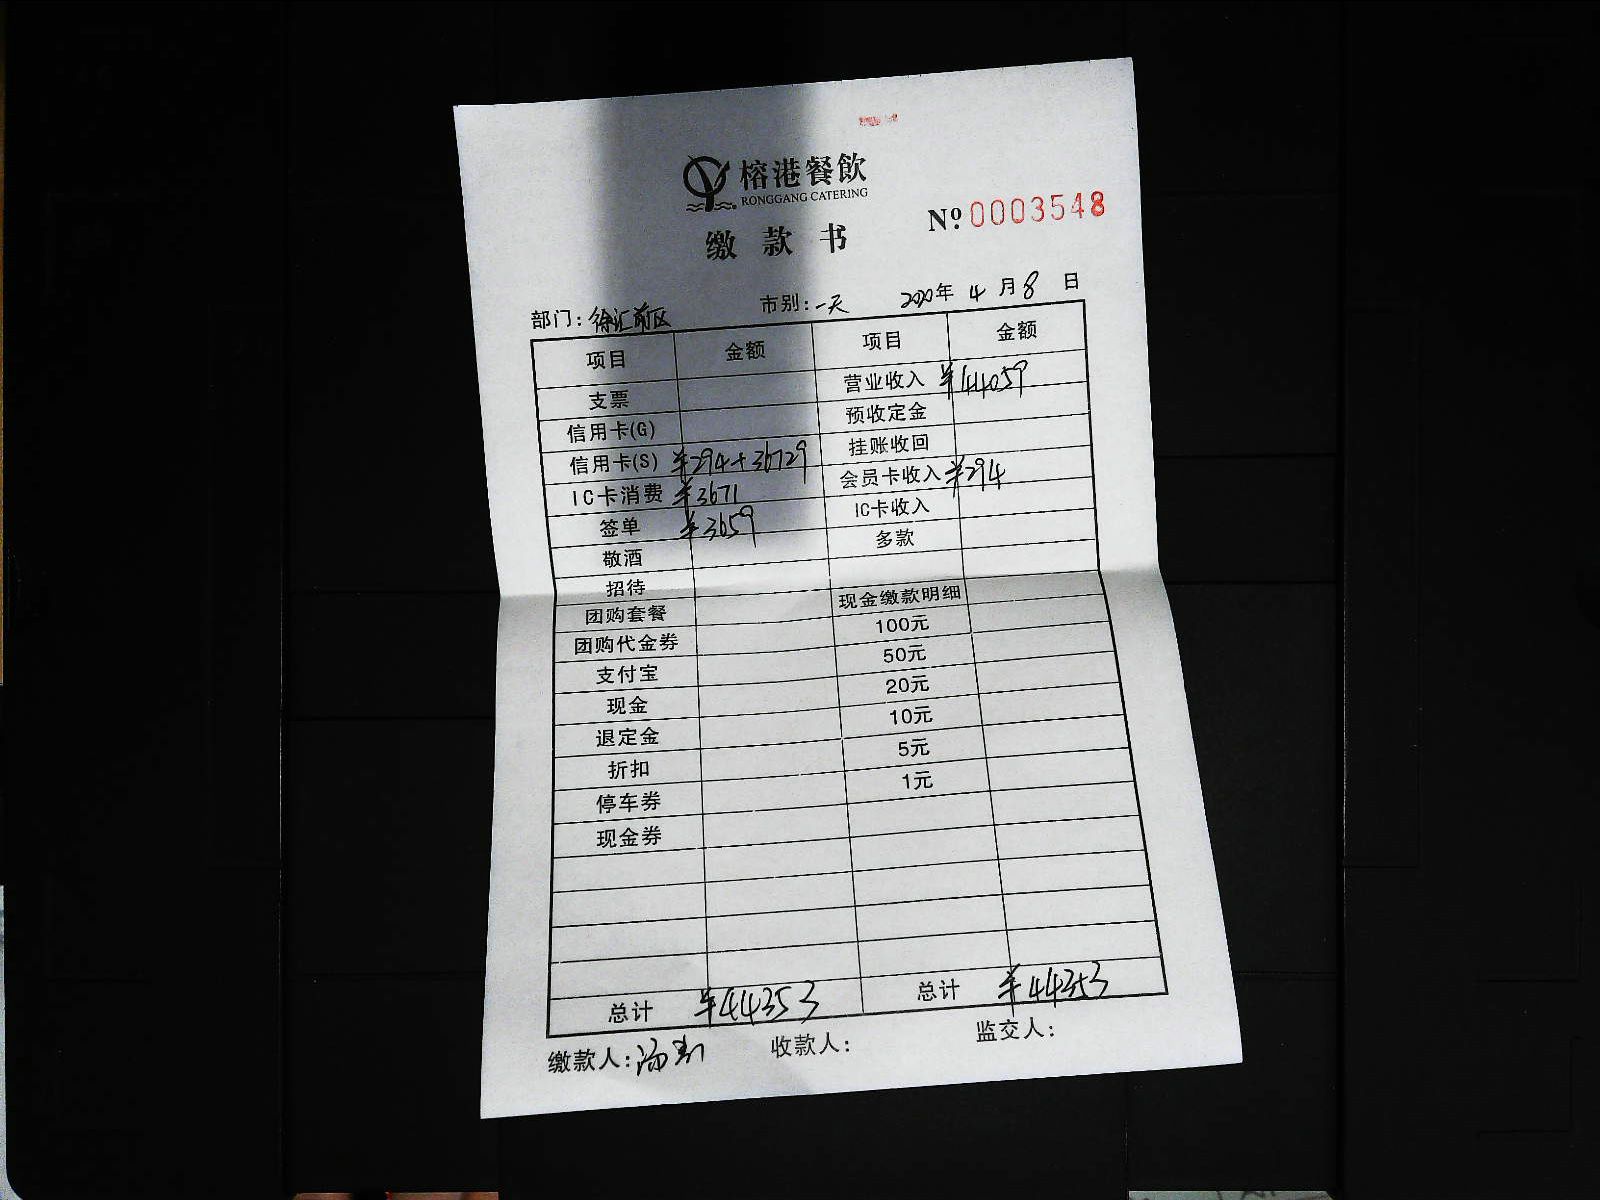 榕港餐飲
RONGGANG CATERING
№ 0003548
缴款书
部门：徐汇前区 市别：一天 2020年 4 月 8 日
项目 金额 项目 金额
支票 营业收入 ¥44059
信用卡(G) 预收定金
信用卡(S) ¥294+36729 挂账收回
IC卡消费 ¥3671 会员卡收入 ¥294
签单 ¥3659 IC卡收入
敬酒 多款
招待
团购套餐 现金缴款明细
团购代金券 100元
支付宝 50元
现金 20元
退定金 10元
折扣 5元
停车券 1元
现金券
总计 ¥44353 总计 ¥44353
缴款人： 收款人： 监交人：